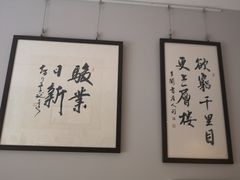 駿業
日新
欲窮千里目
更上一層樓